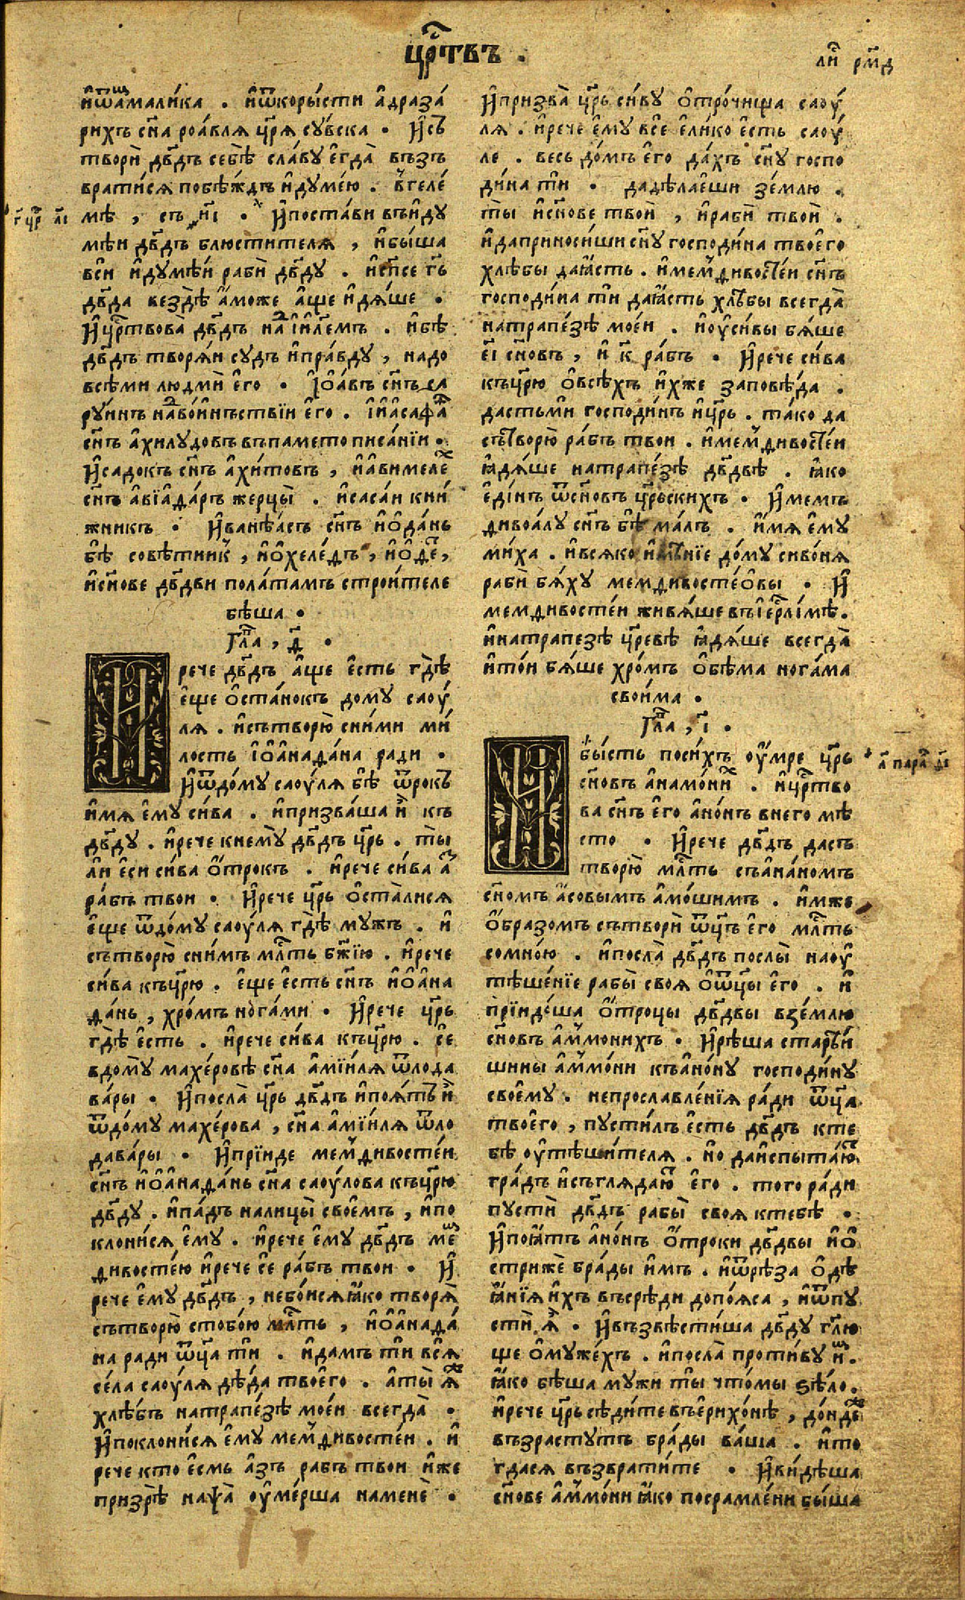 цр҃ствъ .
ли҃ рм҃д
и҆ѿамали́ка . и҆ѿкоры́сти а҆драза́
рихъ сн҃а роа́вля цр҃я сꙋ́вска . И҆съ
твори̑ дв҃дъ себѣ̀ сла́вꙋ е҆гда̀ възъ
врати́ся побѣ́ждъ и҆дꙋме́ю . в҆геле́
мѣ , съ и҃і . И҆поста́ви въи҆дꙋ
мѣи дв҃дъ блюстителя , и҆бы́ша
вси и҆дꙋмѣ́и раби̑ дв҃дꙋ . и҆сп҃се гь҃
дв҃да вездѣ̀ а҆́може а҆ще и҆дя́ше .
И҆цр҃твова̀ дв҃дъ на і҆и҃лемъ . и҆бѣ̀
дв҃дъ творя́и сꙋдъ и҆пра́вдꙋ , надо
всѣ́ми людми̑ е҆го . І҆ѡа́въ сн҃ъ са
рꙋ́инъ надво́иньствїи е҆го . І҆и҆асафа҃т
сн҃ъ а҆хилꙋдовъ въпаметописа́нїи .
И҆садо́къ сн҃ъ а҆хи́товъ , и҆а҆вимеле҃х
сн҃ъ а҆вїа҆да́ръ жерцы̀ . и҆саса́и кни́
жникъ . И҆ване́асъ сн҃ъ и҆о҆да́нь
бѣ̀ совѣ́тникъ , и҆о҆хеле́дъ , и҆о҆де҃ ,
и҆сн҃ове дв҃дви пола́тамъ строи́теле
бѣша .
Гла҃ , д҃ .
И рече дв҃дъ а҆ще е҆сть гдѣ̀
е҆ще о҆ста́нокъ домꙋ саоу́
ля . и҆сътворю̀ сни́ми ми́
лость і҆о҆а҆нада́на ра́ди .
И҆ѿдо́мꙋ саоу́ля бѣ̀ ѿрокъ
и҆мя е҆мꙋ си́ва . и҆призва́ша и҆̀ къ
дв҃дꙋ . и҆рече кнемꙋ̀ дв҃дъ цр҃ь . ты̀
ли е҆си си́ва о҆́трокъ . и҆рече си́ва а҃з
ра́бъ твои . И҆рече цр҃ь о҆ста́лися
е҆ще ѿдо́мꙋ саоу́ля гдѣ̀ мꙋжъ . и҆
сътворю̀ сни́мъ мл҃ть бж҃їю . и҆рече
си́ва къцр҃ю . е҆ще е҆сть сн҃ъ и҆о҆а҆на
да́нь , хро́мъ нога́ми . И҆рече цр҃ь
гдѣ̀ е҆сть . и҆рече си́ва къцр҃ю . се
вдо́мꙋ махе́ровѣ сн҃а а҆мїи́ля ѿлода
ва́ры . И҆посла̀ цр҃ь дв҃дъ и҆поятъ и҆̀
ѿдо́мꙋ махе́рова , сн҃а а҆мїи́ля ѿло
дава́ры . И҆прїиде мем҃дивосте́и
сн҃ъ и҆о҆а҆нада́нь сн҃а саоу́лова къцр҃ю
дв҃дꙋ . и҆па́дъ налицы̀ свое́мъ , и҆по
клони́ся е҆мꙋ . и҆рече е҆мꙋ дв҃дъ ме҃м
дивосте́ю и҆рече се ра́бъ твои . И҆
рече е҆мꙋ дв҃дъ , небо́ися ꙗ҆ко творя̀
сътворю̀ стобо́ю мл҃ть , и҆о҆а҆нада́
на ради ѿц҃а ти . и҆да́мъ ти вся̀
се́ла саоу́ля дѣ́да твое́го . а҆ты̀ ꙗ҃ж
хлѣ́бъ натрапе́зѣ мое́и всегда̀ .
И҆поклони́ся е҆мꙋ мем҃дивосте́и . и҆
рече кто е҆смь а҆зъ ра́бъ твои и҆же
призрѣ̀ напса̀ оу҆ме́рша наменѐ .
И҆призва̀ цр҃ь си́вꙋ о҆тро́чища саоу́
ля . и҆рече е҆мꙋ все е҆ли́ко е҆сть саоу́
ле . весь до́мъ е҆го да́хъ сн҃ꙋ госпо
ди́на ти . дадѣ́лае҆ши зе́млю .
ты̀ и҆сн҃ове твои̑ , и҆раби̑ твои̑ .
и҆даприноси́ши сн҃ꙋ господи́на твое́го
хлѣ́бы даꙗ҆сть . и҆мем҃дивосте́и сн҃ъ
господи́на ти даꙗ҆сть хлѣ́бы всегда̀
натрапе́зѣ мое́и . и҆оу҆си́вы бя́ше
е҃і сн҃овъ , и҆ к҃ ра́бъ . И҆рече си́ва
къцр҃ю о҆всѣ́хъ и҆́хже заповѣ́да .
дастьми господи́нъ и҆цр҃ь . та́ко да
сътворю̀ ра́бъ твои . и҆мем҃дивосте́и
ꙗ҆дя́ше натрапе́зѣ дв҃двѣ . ꙗ҆ко
е҆ди́нъ ѿсн҃овъ цр҃скихъ . И҆мемъ
дивоа́лꙋ сн҃ъ бѣ̀ ма́лъ . и҆мя е҆мꙋ
ми́ха . и҆всяко и҆мѣ́нїе до́мꙋ сиво́ня
раби̑ бя́хꙋ мемдивосте́о҆вы . И҆
мемдивосте́и живя́ше въі҆ер҃лі́мѣ .
и҆натрапезѣ цр҃евѣ ꙗ҆дя́ше всегда̀
и҆то́и бя́ше хро́мъ о҆бѣ́ма нога́ма
свои́ма .
Гла҃ , і҃ .
И бы́сть поси́хъ оу҆мре цр҃ь
сн҃овъ а҆намо́них . и҆цр҃тво
ва сн҃ъ е҆го а҆но́нъ внего мѣ́
сто . И҆рече дв҃дъ дасъ
творю̀ мл҃ть съа҆на́номъ
сн҃омъ а҆́совымъ а҆мо́шимъ . и҆мже
о҆́бразомъ сътвори̑ ѿц҃ъ е҆го мл҃ть
сомно́ю . и҆посла̀ дв҃дъ послы̀ наоу҆
тѣше́нїе рабы̀ своя о҆ѿц҃ы е҆го . и҆
прїидо́ша о҆́троцы дв҃двы взе́млю
сн҃овъ а҆м҃монихъ . И҆рѣ́ша старѣ́и
шины а҆м҃мо́ни къа҆но́нꙋ господи́нꙋ
свое́мꙋ . непрославле́нїя ра́ди ѿц҃а
твое́го , пꙋсти́лъ е҆сть дв҃дъ кте
бѣ̀ оу҆тѣши́теля . но даи҆спыта́ют
гра́дъ и҆съгля́даю҃т е҆го . того ра́ди
пꙋсти̑ дв҃дъ рабы̀ своя ктебѣ̀ .
И҆поꙗ҆тъ а҆но́нъ о҆́троки дв҃двы и҆о҆
стри́же бра́ды и҆мъ . и҆ѿрѣ́за о҆дѣ
ꙗ҆́нїя и҆́хъ въсре́ди допо́яса , и҆ѿпꙋ
сти̑ я҆̀ . И҆възвѣсти́ша дв҃дꙋ гл҃ю
ще о҆мꙋже́хъ . и҆посла̀ проти́вꙋ и҆м .
ꙗ҆ко бѣ́ша мꙋжи ти̑ чтомы̀ ѕѣло̀ .
и҆рече цр҃ь сѣди́те въерихо́нѣ , до́нде҃ж
възрастꙋтъ бра́ды ва́ша . и҆то
гдася възврати́те . И҆ви́дѣша
сн҃ове а҆м҃мо́ни ꙗ҆ко посрамле́ни бы́ша
г҃ цр҃ л҃і
а҃ пара҃ ѳ҃і